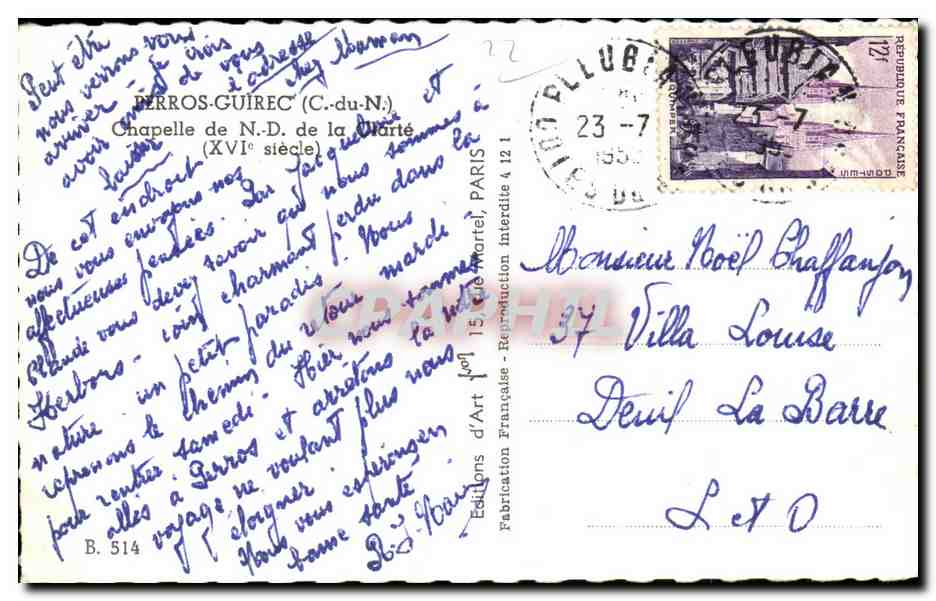 Peut être
nous verrons vous
arriver je crois
avoir mis de vous
l'adresse
chez Maman
PERROS-GUIREC (C.-du-N.)
Chapelle de N.-D. de la Clarté
(XVIe siècle)
De cet endroit
nous vous envoyons nos
affectueuses pensées. Par Jacqueline et
Claude vous devez savoir que nous sommes à
Herbors - coin charmant perdu dans la
nature un petit paradis. Nous
reprenons le chemin du retour mardi
pour rentrer samedi - Hier nous sommes
allés à Perros et arrêtons là notre
voyage ne voulant plus nous
éloigner.
Nous vous espérons en
bonne santé
B. 514
Editions d'Art Jos 15, rue Martel, PARIS
Fabrication Française - Reproduction Interdite 4 12 1
22
PLUBIAN
23 -7
CÔTES DU
PLEUBIAN
23 -7
12f
RÉPUBLIQUE FRANÇAISE
POSTES
QUIMPER
CPAPHIL
Monsieur Noël Chaffanjon
37 Villa Louise
Deuil La Barre
S et O